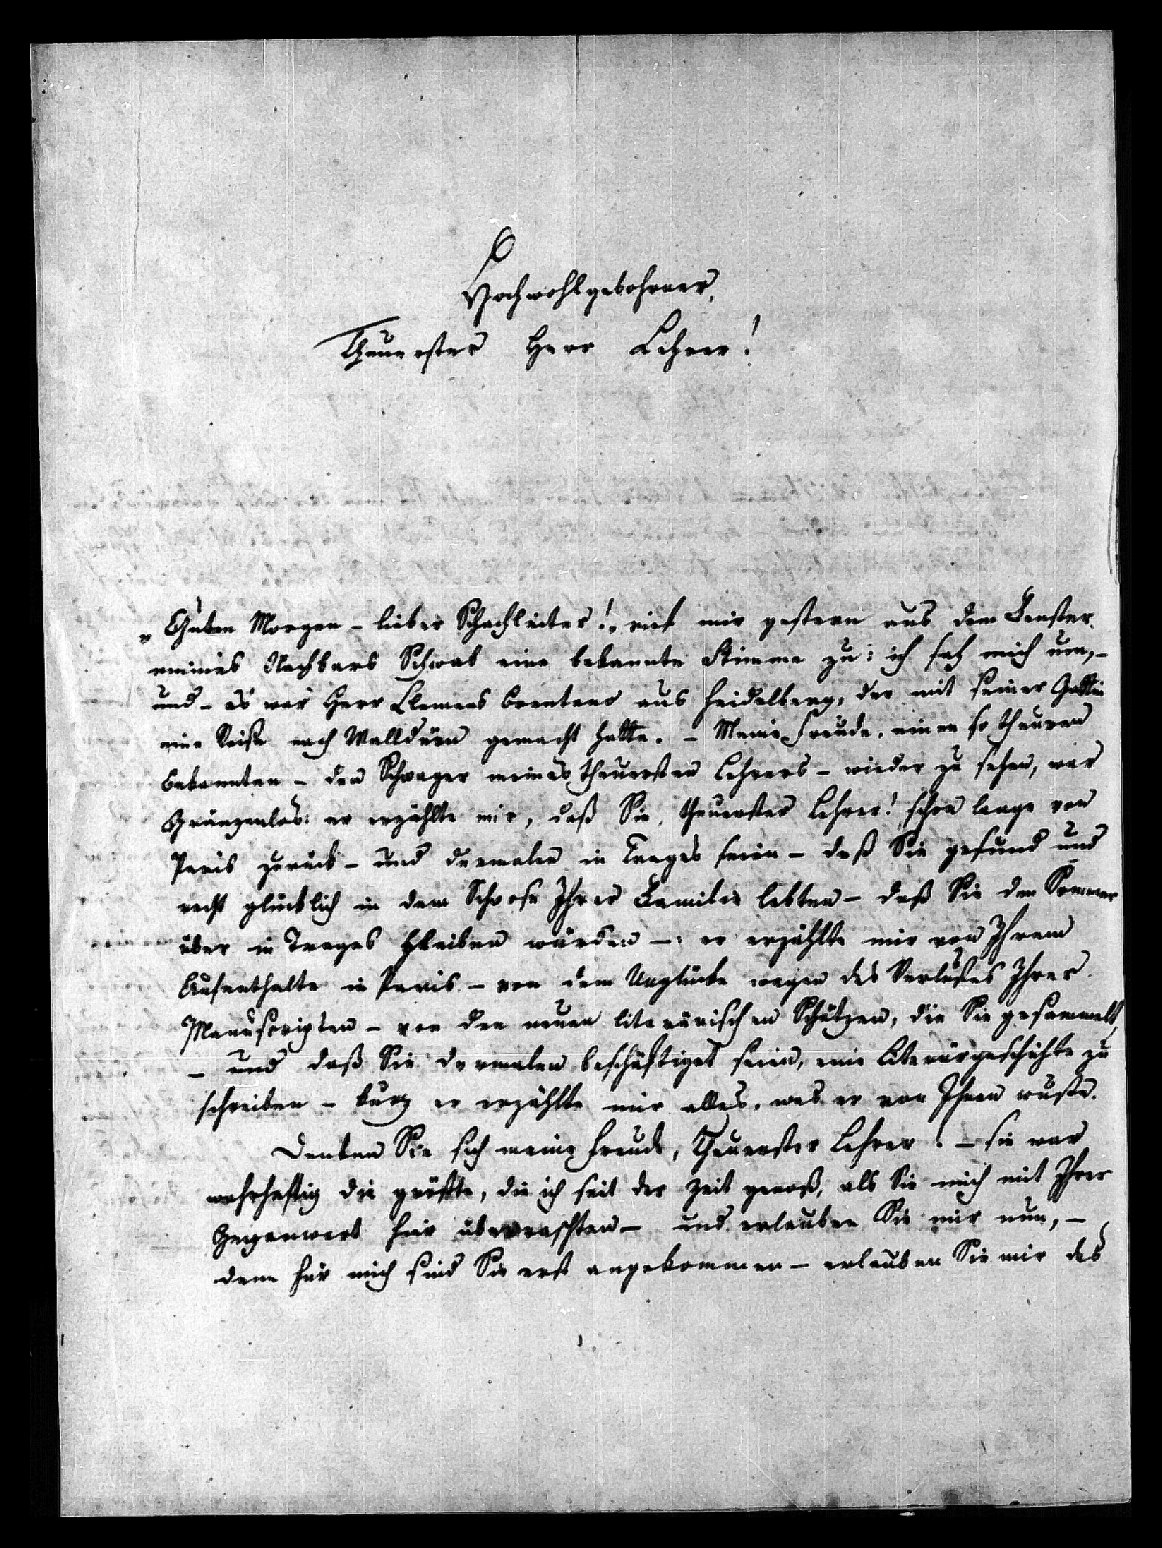 Hochwohlgebohrner,
Theuerster Herr Lehrer!
„Guten Morgen – lieber Schachleiter!„ rief mir gestern aus dem Fenster
meines Nachbars Schwab eine bekannte Stimme zu: ich sah mich um, –
und – es war Herr Clemens Brentano aus Heidelberg, der mit seiner Gattin
eine Reise nach Walldürn gemacht hatte. – Meine Freude, einen so theuren
Bekannten – den Schwager meines theuersten Lehrers – wieder zu sehen, war
Gränzenlos: er erzählte mir, daß Sie, theuerster Lehrer! schon lange von
Paris zurück – und dermalen in Trages seien – daß Sie gesund und
recht glücklich in dem Schoose Ihrer Familie lebten – daß Sie den Sommer
über in Trages bleiben würden –: er erzählte mir von Ihrem
Aufenthalte in Paris – von dem Unglücke wegen des Verlustes Ihrer
Manuscripten – von den neuen literärischen Schätzen, die Sie gesammelt,
– und daß Sie dermalen beschäftiget seien, eine Literärgeschichte zu
schreiben – kurz er erzählte mir alles, was er von Ihnen wußte.
Denken Sie sich meine Freude, Theuerster Lehrer! – sie war
wahrhaftig die größte, die ich seit der Zeit genoß, als Sie mich mit Ihrer
Gegenwart hier überraschten – und erlauben Sie mir nun, –
denn für mich sind Sie erst angekommen – erlauben Sie mir das